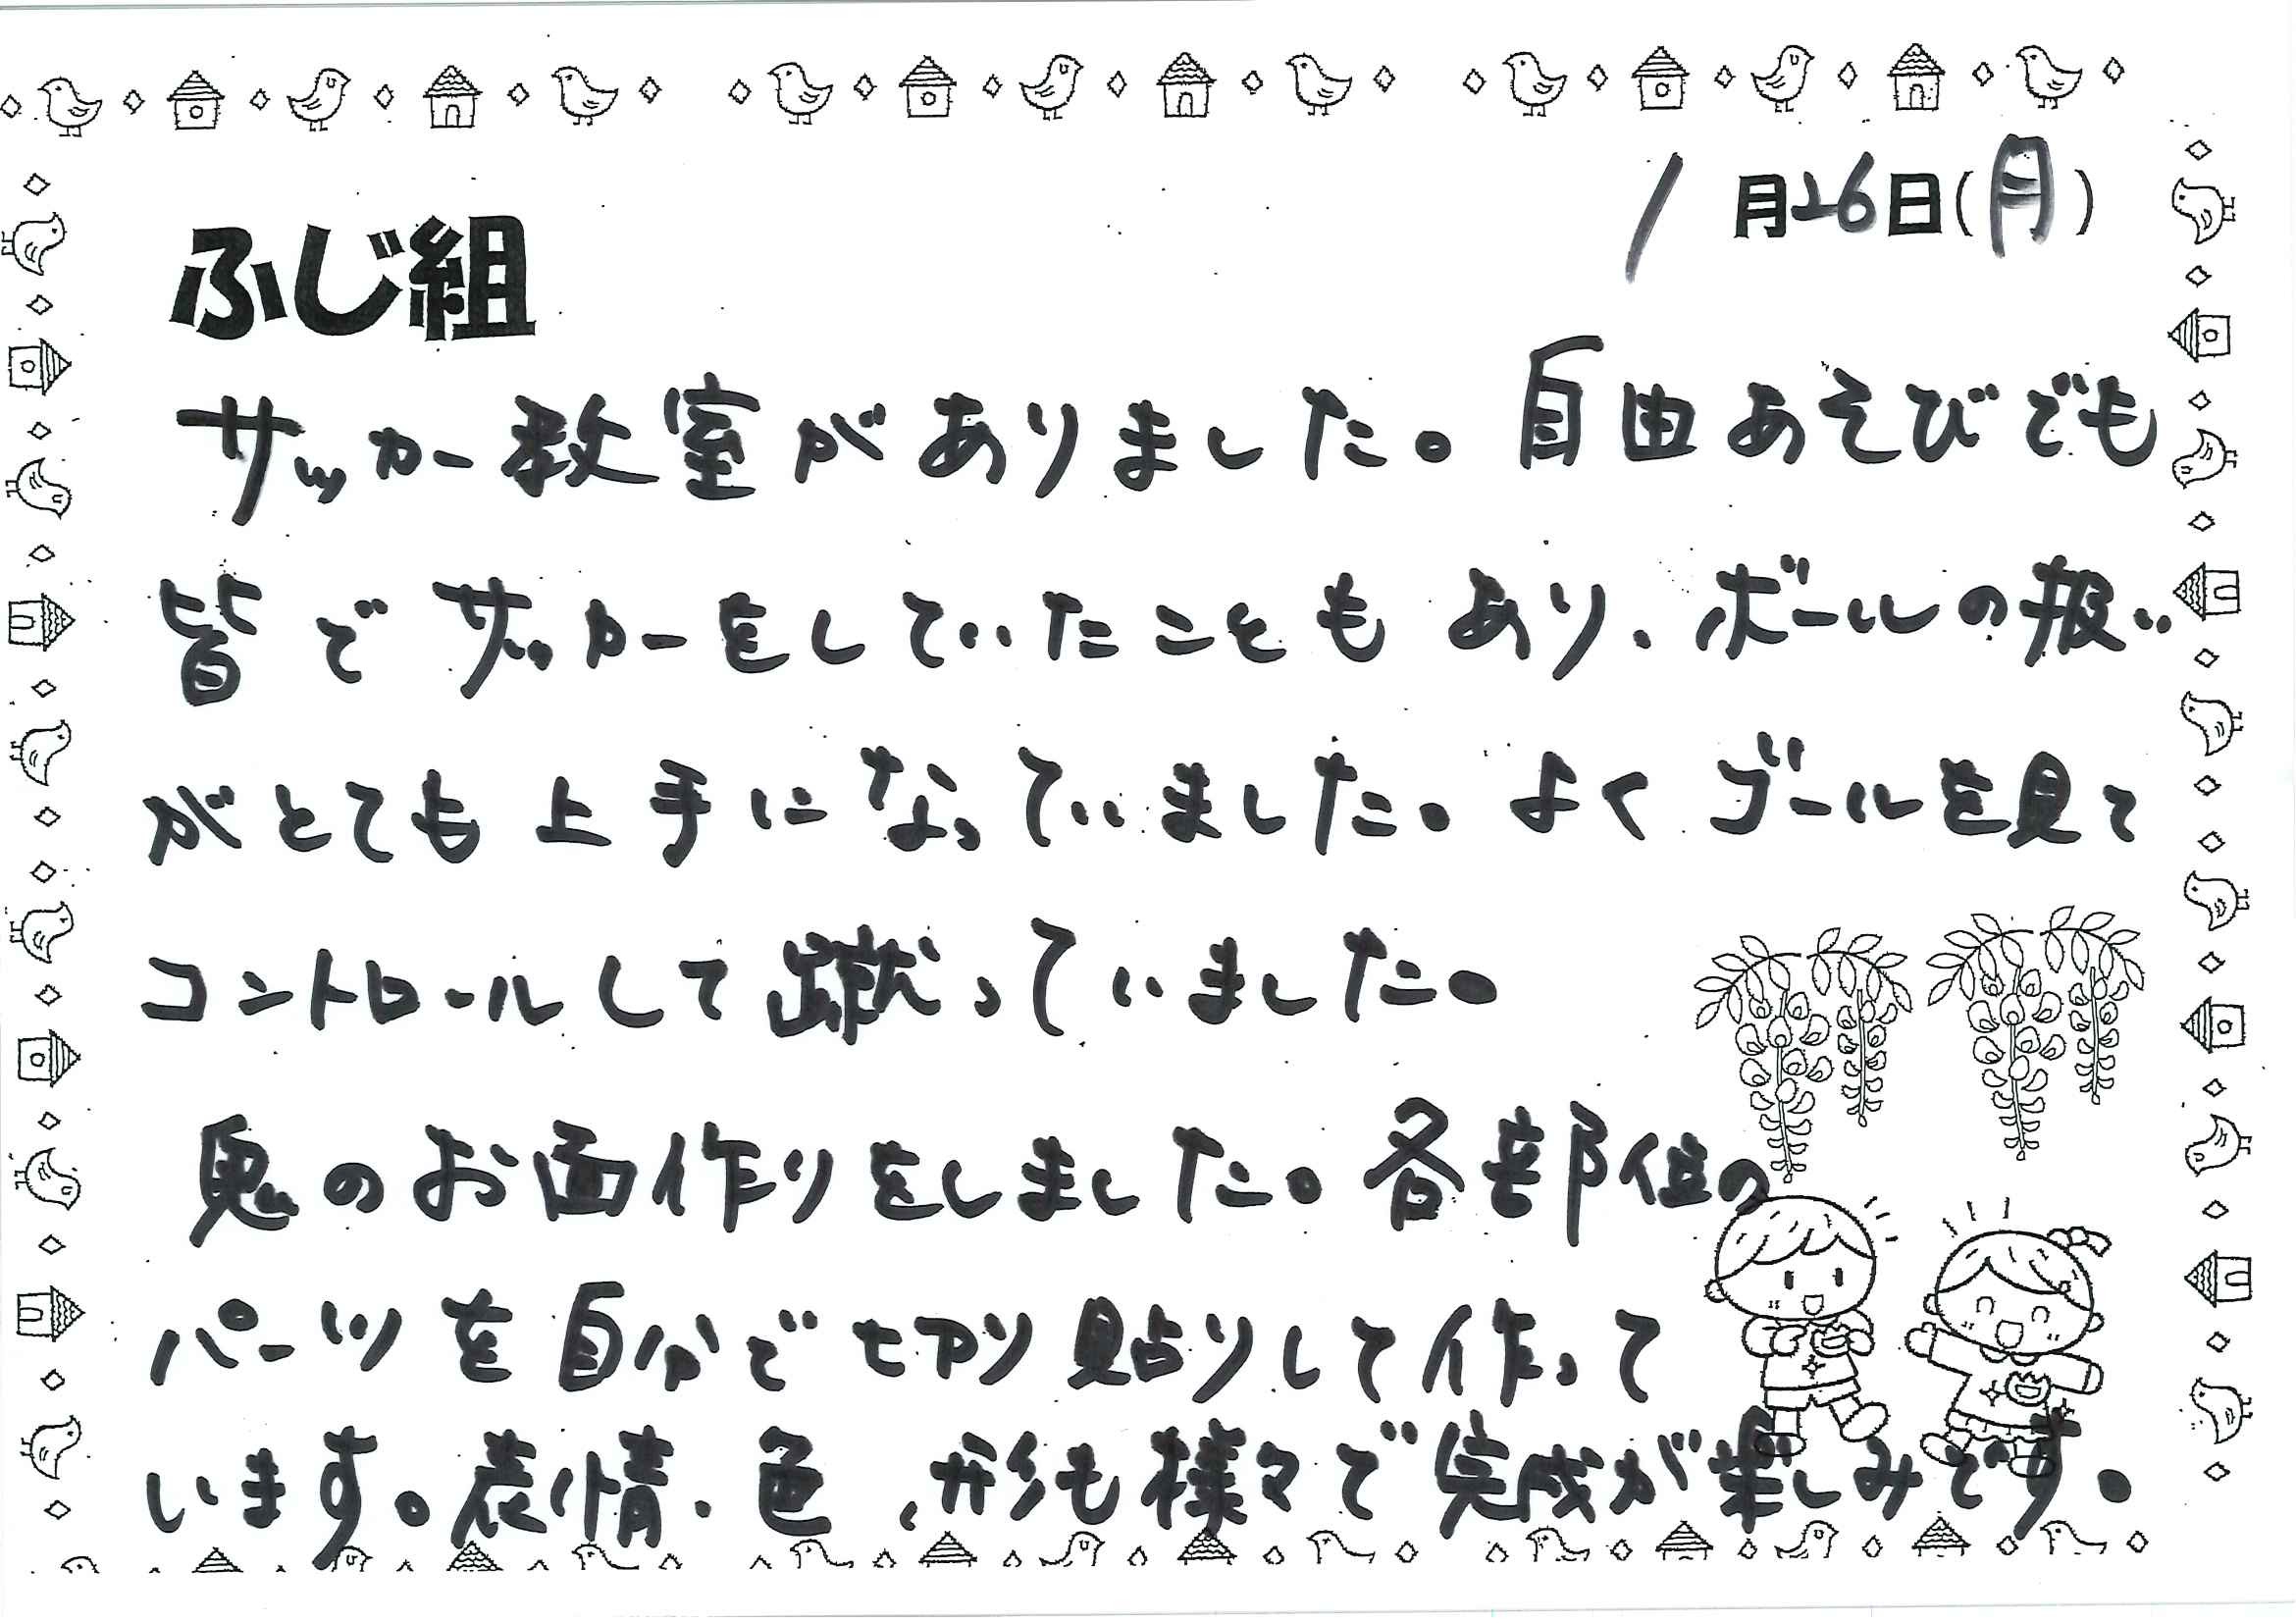 1月26日(月)
ふじ組
サッカー教室がありました。自由あそびでも
皆でサッカーをしていたこともあり、ボールの扱い
がとても上手になっていました。よくゴールを見て
コントロールして蹴っていました。
鬼のお面作りをしました。各部位の
パーツを自分で切り貼りして作って
います。表情、色、形も様々で完成が楽しみです。